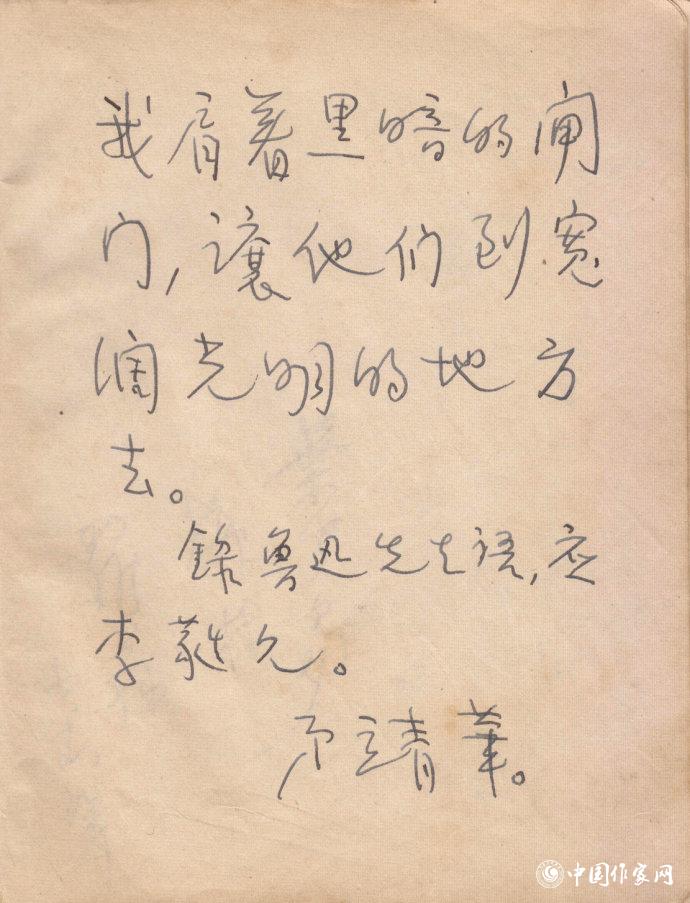 我肩着黑暗的闸
门,讓他们到宽
阔光明的地方
去。
錄鲁迅先生语,应
李蕤兄。
靖華。
中国作家网